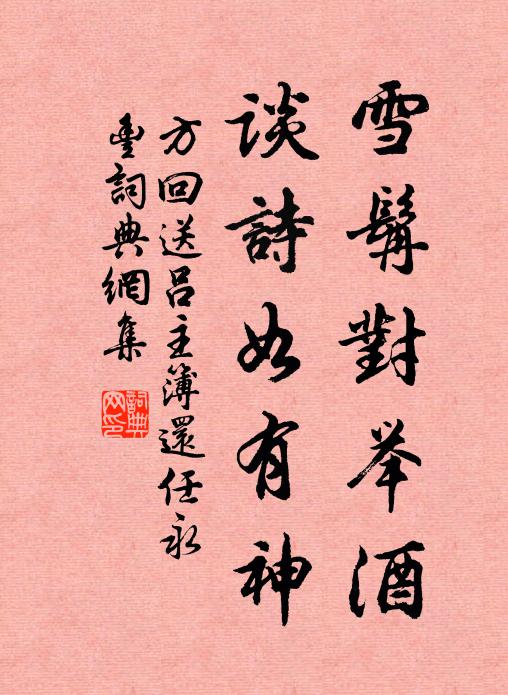 雪髯對举酒
談詩如有神
方回送呂主簿還任永
豊詞典網集
詞典
网印